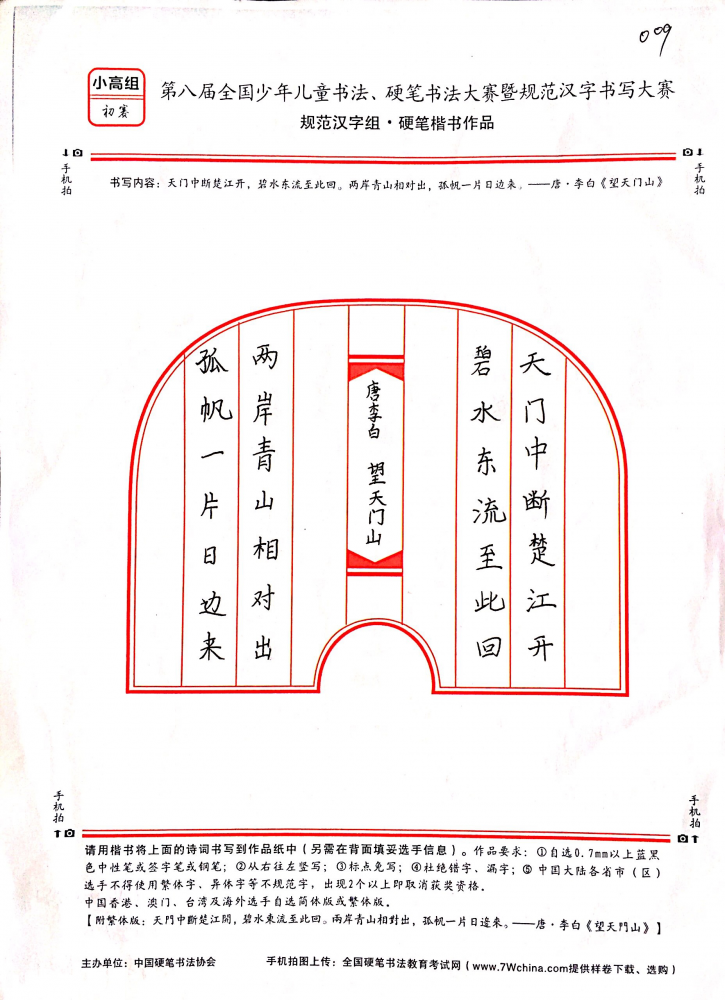 009
小高组
初赛
第八届全国少年儿童书法、硬笔书法大赛暨规范汉字书写大赛
规范汉字组·硬笔楷书作品
手机拍
手机拍
书写内容：天门中断楚江开，碧水东流至此回。两岸青山相对出，孤帆一片日边来。——唐·李白《望天门山》
天门中断楚江开
碧水东流至此回
唐李白 望天门山
两岸青山相对出
孤帆一片日边来
手机拍
手机拍
请用楷书将上面的诗词书写到作品纸中（另需在背面填妥选手信息）。作品要求：①自选0.7mm以上蓝黑
色中性笔或签字笔或钢笔；②从右往左竖写；③标点免写；④杜绝错字、漏字；⑤中国大陆各省市（区）
选手不得使用繁体字、异体字等不规范字，出现2个以上即取消获奖资格。
中国香港、澳门、台湾及海外选手自选简体版或繁体版。
【附繁体版：天門中斷楚江開，碧水東流至此回。兩岸青山相對出，孤帆一片日邊來。——唐·李白《望天門山》】
主办单位：中国硬笔书法协会 手机拍图上传：全国硬笔书法教育考试网（www.7Wchina.com提供样卷下载、选购）